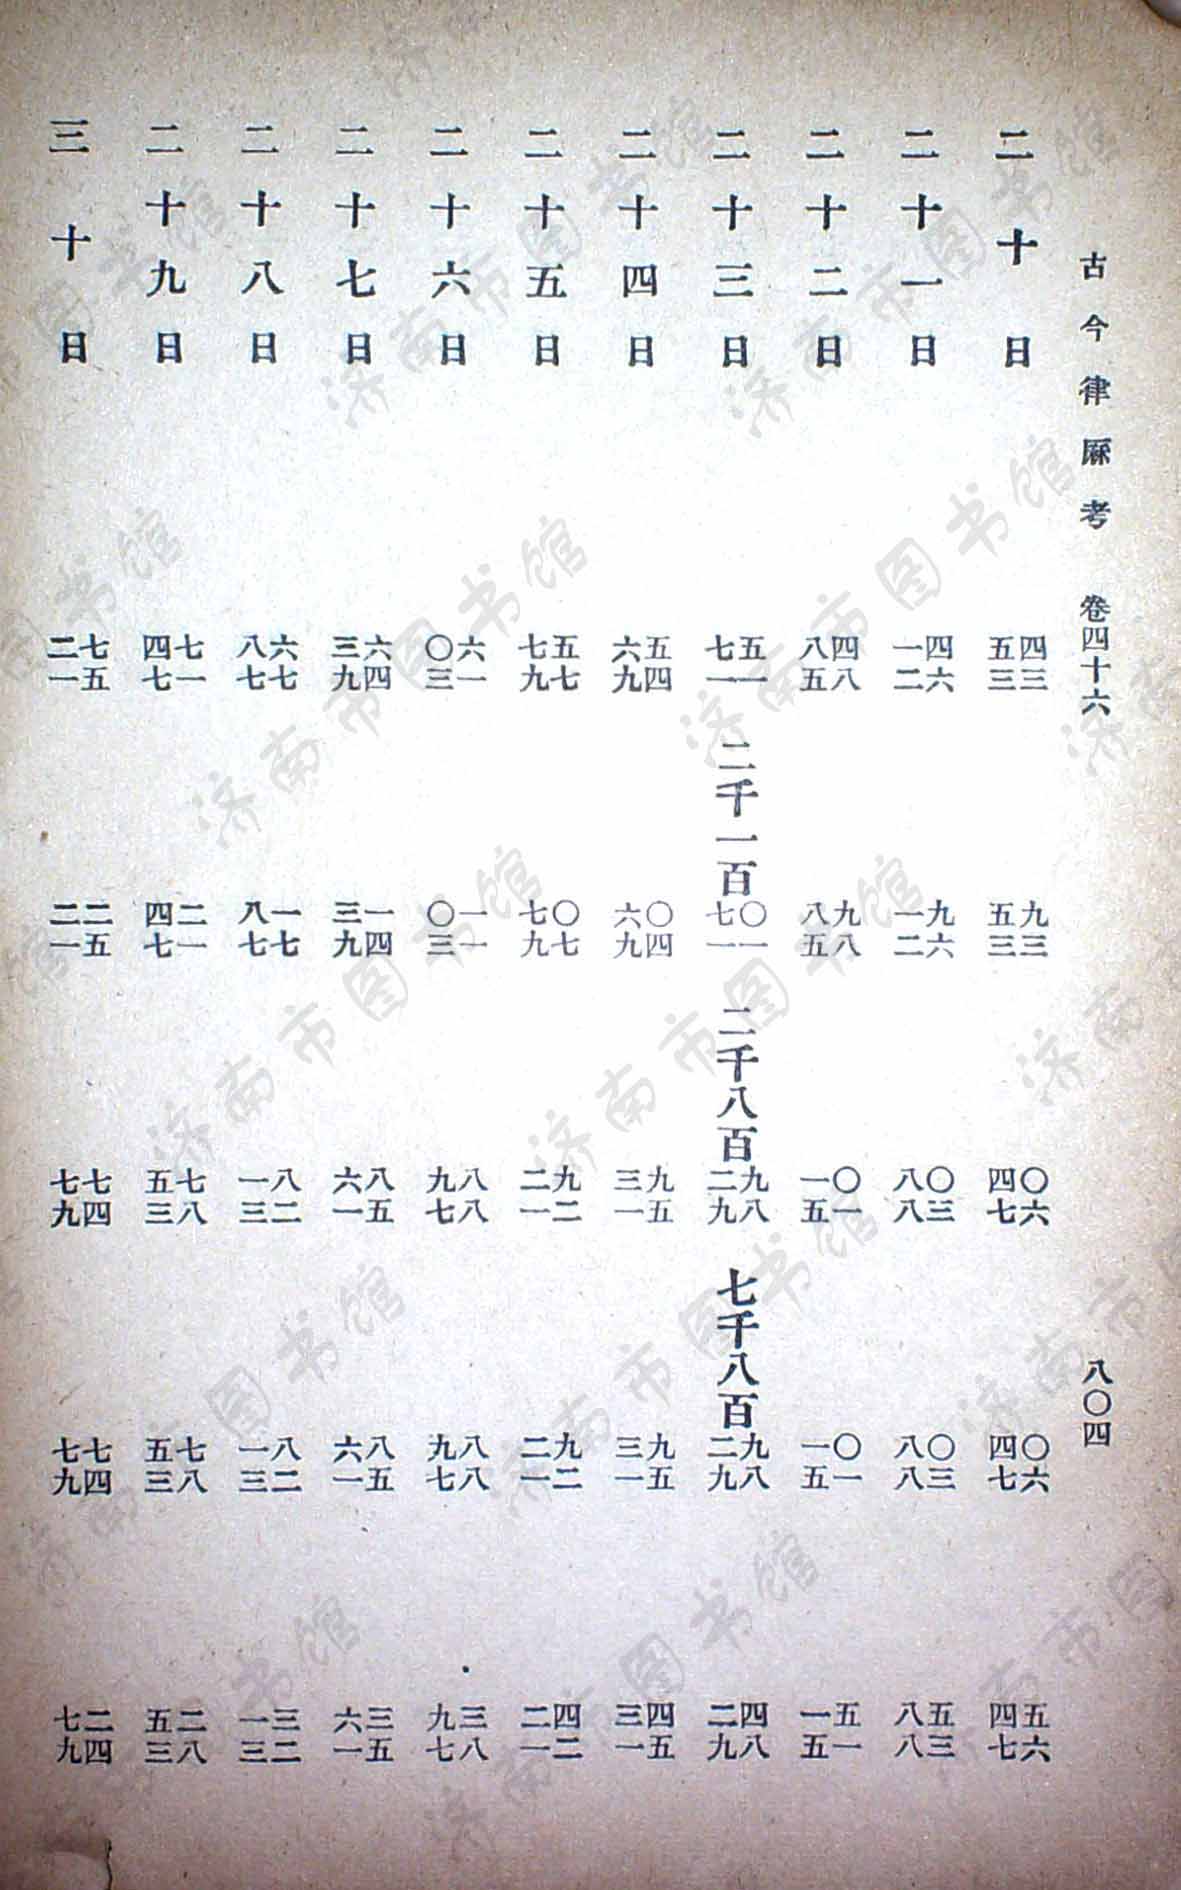 古今律厤考 卷四十六 八〇四
二十日 四三五三 九三五三 〇六四七 〇六四七 五六四七
二十一日 四六一二 九六一二 〇三八八 〇三八八 五三八八
二十二日 四八八五 九八八五 〇一一五 〇一一五 五一一五
二十三日 五一七一 二千一百〇一七一 二千八百九八二九 七千八百九八二九 四八二九
二十四日 五四六九 〇四六九 九五三一 九五三一 四五三一
二十五日 五七七九 〇七七九 九二二一 九二二一 四二二一
二十六日 六一〇三 一一〇三 八八九七 八八九七 三八九七
二十七日 六四三九 一四三九 八五六一 八五六一 三五六一
二十八日 六七八七 一七八七 八二一三 八二一三 三二一三
二十九日 七一四七 二一四七 七八五三 七八五三 二八五三
三十日 七五二一 二五二一 七四七九 七四七九 二四七九
济南市图书馆